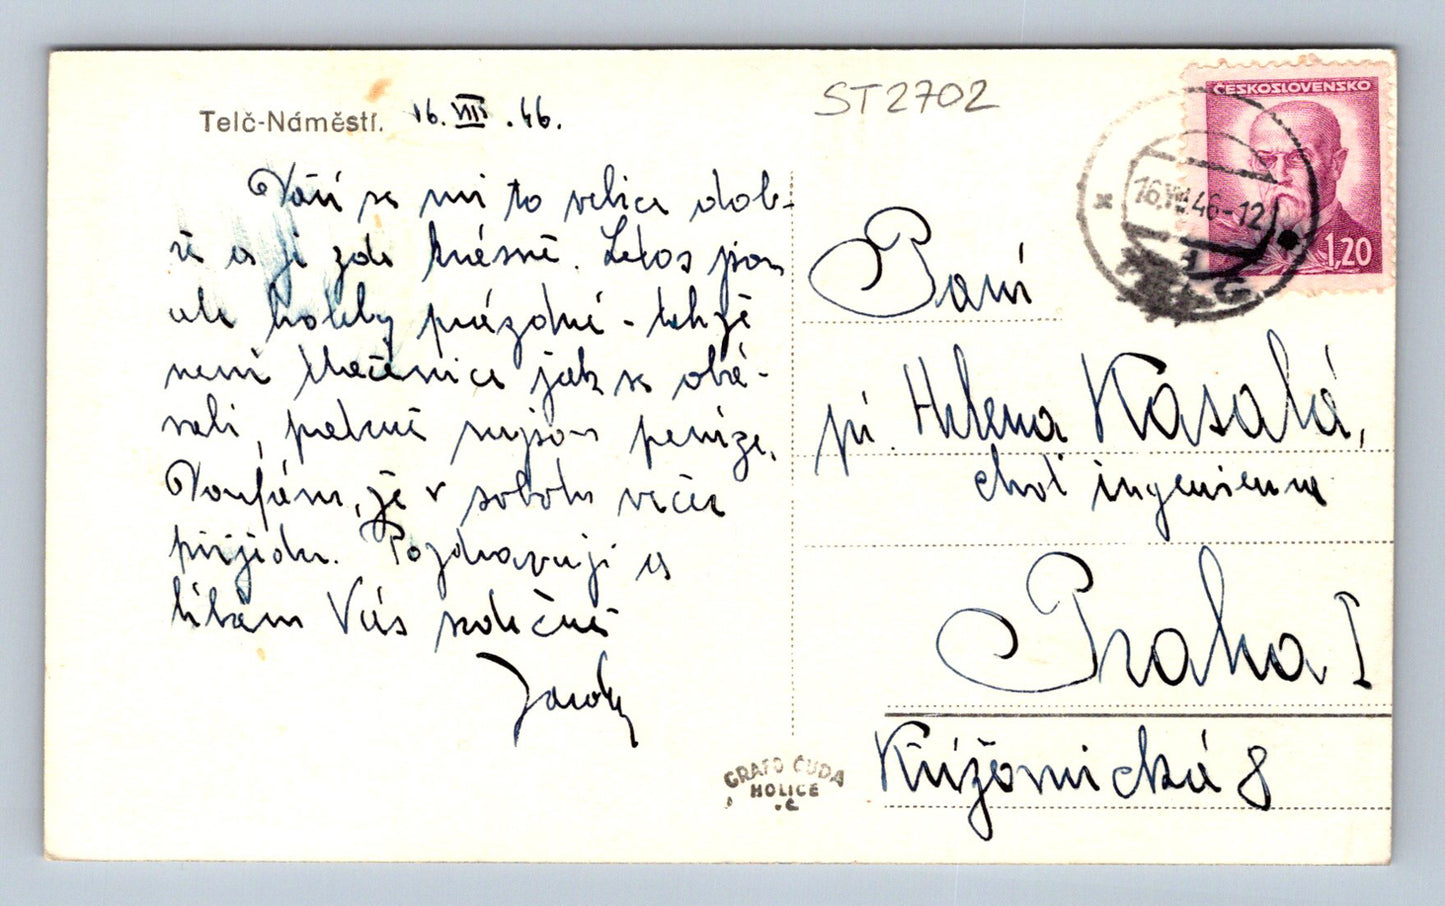 Telč-Náměstí. 16. VIII. 46.
ST2702
ČESKOSLOVENSKO
1,20
16.VIII.46-12
Daří se mi to velice dob-
ře a je zde krásně. Letos jsou
ale hotely prázdné - takže
není tlačenice jak se obá-
vali, patrně nejsou peníze.
Doufám, že v sobotu večer
přijedu. Pozdravuji a
líbám Vás srdečně
Paní
pí. Helena Kasalá,
chot ingenieura
Praha I
Křižovnická 8
GRAFO ČUDA
HOLICE